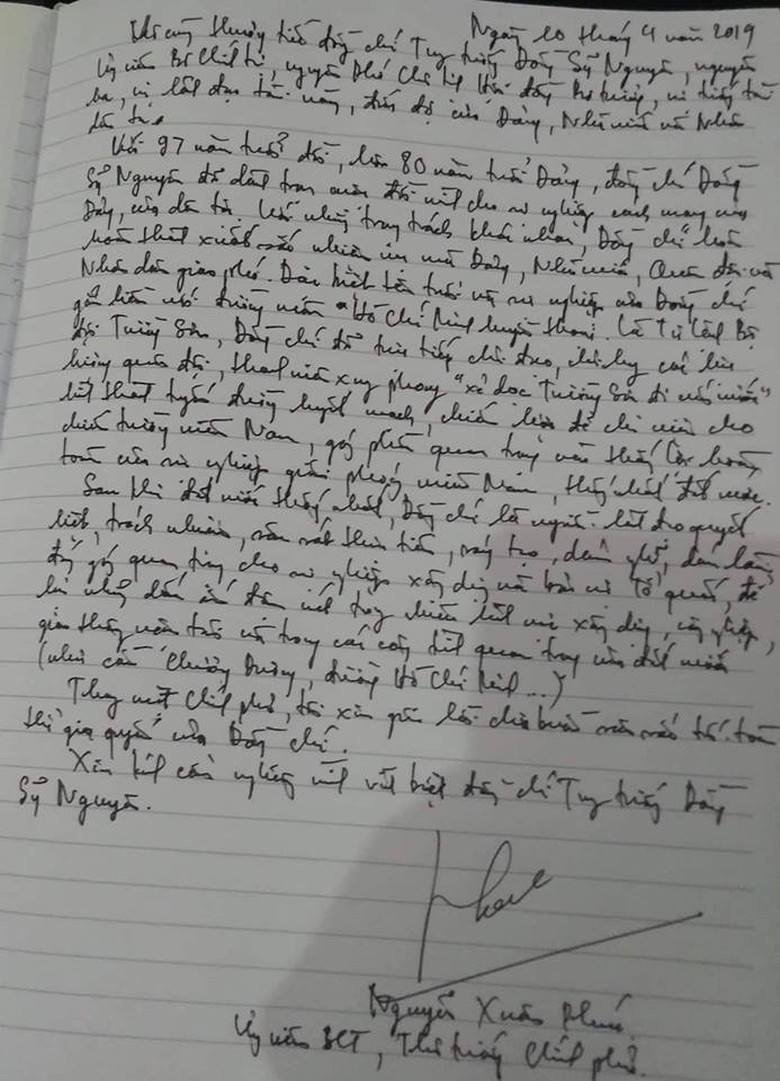 Ngày 10 tháng 4 năm 2019
thương tiếc đồng chí Trung tướng Đồng Sỹ Nguyên, nguyên
Ủy viên Bộ Chính trị, nguyên Phó Chủ tịch Hội đồng Bộ trưởng, vị tướng tài
ba, vị lãnh đạo tài năng, của Đảng, Nhà nước và Nhân
dân ta.
Với 97 năm tuổi đời, hơn 80 năm tuổi Đảng, đồng chí Đồng
Sỹ Nguyên đã dành trọn cuộc đời mình cho sự nghiệp cách mạng của
Đảng, của dân tộc. Với những trọng trách khác nhau, Đồng chí luôn
hoàn thành xuất sắc nhiệm vụ mà Đảng, Nhà nước, Quân đội và
Nhân dân giao phó. Đặc biệt tên tuổi và sự nghiệp của Đồng chí
gắn liền với đường mòn "Hồ Chí Minh huyền thoại. Là Tư lệnh Bộ
đội Trường Sơn, Đồng chí đã trực tiếp chỉ đạo, chỉ huy các lực
lượng quân đội, thanh niên xung phong "xẻ dọc Trường Sơn đi cứu nước"
hình thành tuyến đường huyết mạch, chiến lược để chi viện cho
chiến trường miền Nam, góp phần quan trọng vào thắng lợi hoàn
toàn của sự nghiệp giải phóng miền Nam, thống nhất đất nước.
Sau khi đất nước thống nhất, Đồng chí là người lãnh đạo quyết
liệt, trách nhiệm, sâu sát thực tiễn, sáng tạo, dám nghĩ, dám làm,
đóng góp quan trọng cho sự nghiệp xây dựng và bảo vệ Tổ quốc, để
lại những dấu ấn đậm nét trong nhiều lĩnh vực xây dựng, công nghiệp,
giao thông vận tải và trong các công trình quan trọng của đất nước
(như cầu Chương Dương, đường Hồ Chí Minh...)
Thay mặt Chính phủ, tôi xin gửi lời chia buồn sâu sắc tới toàn
thể gia quyến của Đồng chí.
Xin kính cẩn nghiêng mình vĩnh biệt đồng chí Trung tướng Đồng
Sỹ Nguyên.
Phúc
Nguyễn Xuân Phúc
Ủy viên BCT, Thủ tướng Chính phủ.